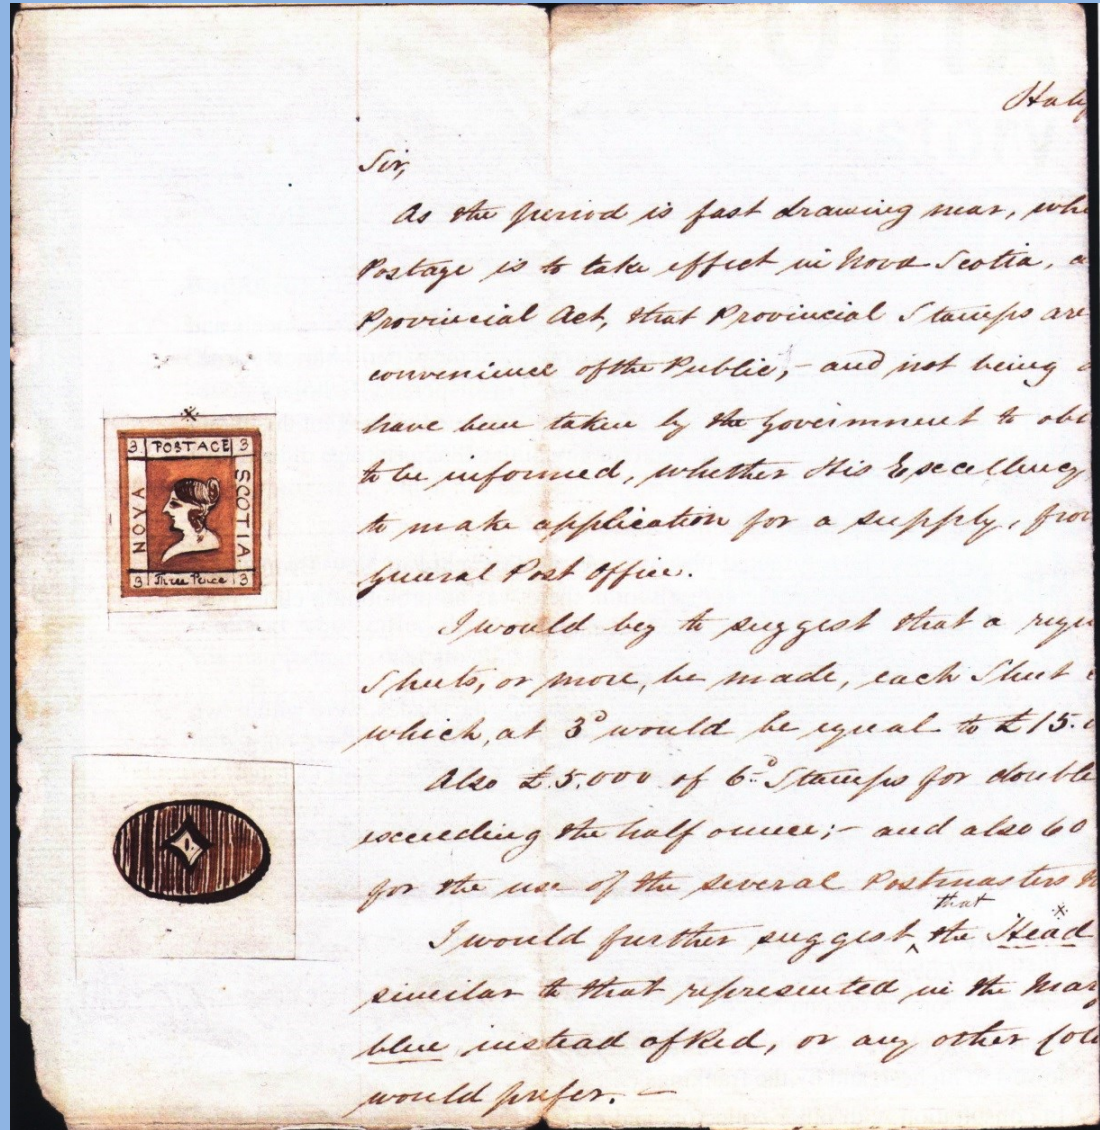 Sir,
As the period is fast drawing near,
Postage is to take effect in Nova Scotia,
Provincial Act, that Provincial Stamps are
convenience of the Public,- and not being
have been taken by the Government to
to be informed, whether His Excellency
to make application for a supply, from
General Post Office.
I would beg to suggest that a
Sheets, or more, be made, each Sheet
which, at 3d would be equal to £15.
Also £5.000 of 6d Stamps for double
exceeding the half ounce;- and also 60
for the use of the several Postmasters
that
I would further suggest ^ the Head
similar to that represented in the
blue instead of Red, or any other
would prefer. -
3 POSTAGE 3
NOVA
SCOTIA
3 Three Pence 3
1